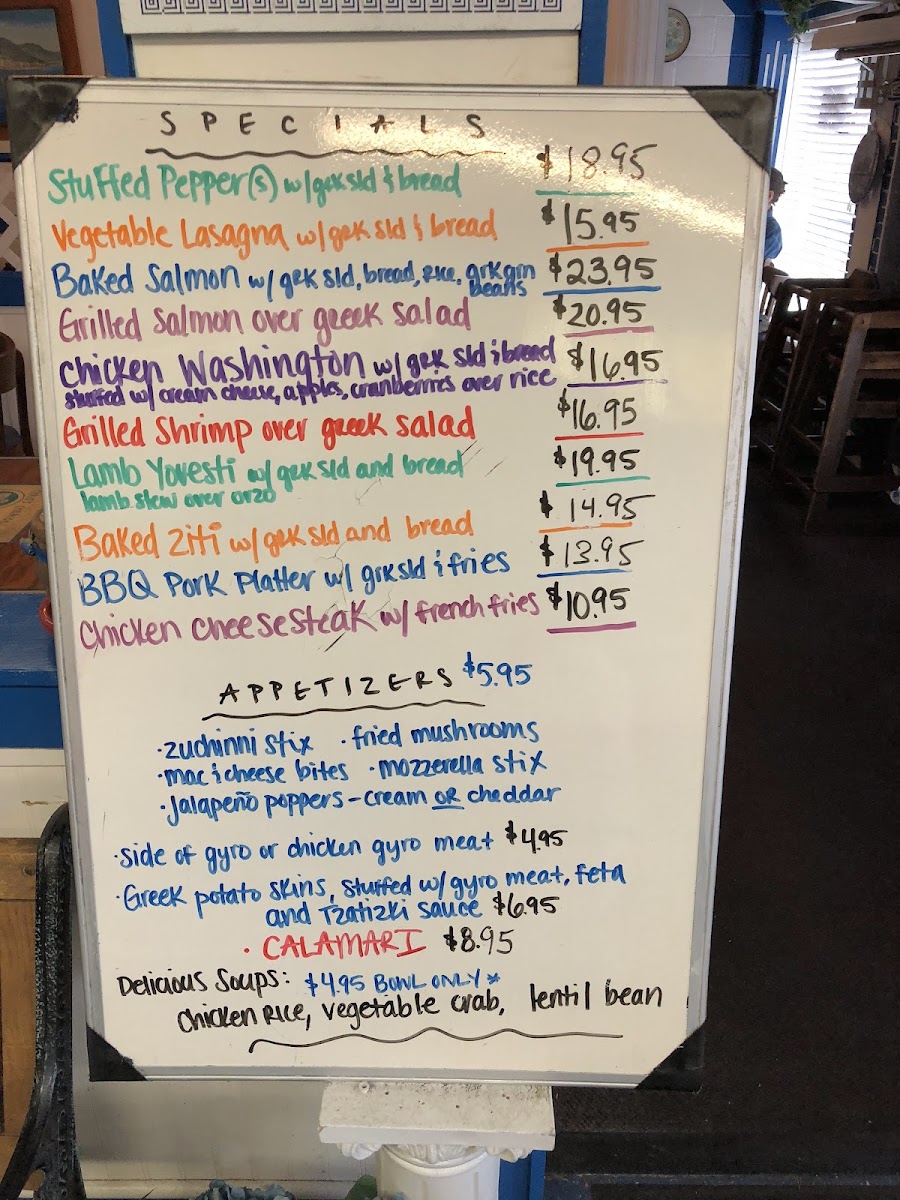 SPECIALS
Stuffed Pepper(s) w/gek sld & bread $18.95
Vegetable Lasagna w/gek sld & bread $15.95
Baked Salmon w/gek sld, bread, rice, grk grn beans $23.95
Grilled Salmon over greek salad $20.95
Chicken Washington w/ gek sld & bread $16.95
stuffed w/ cream cheese, apples, cranberries over rice
Grilled Shrimp over greek salad $16.95
Lamb Yovesti w/ gek sld and bread $19.95
lamb stew over orzo
Baked Ziti w/ gek sld and bread $14.95
BBQ Pork Platter w/ grk sld & fries $13.95
Chicken cheesesteak w/ french fries $10.95
APPETIZERS $5.95
· zuchinni stix · fried mushrooms
· mac & cheese bites · mozzerella stix
· jalapeño poppers - cream OR cheddar
· side of gyro or chicken gyro meat $4.95
· Greek potato skins, stuffed w/ gyro meat, feta
and Tzatizki sauce $6.95
· CALAMARI $8.95
Delicious Soups: $4.95 BOWL ONLY *
Chicken Rice, vegetable crab, lentil bean